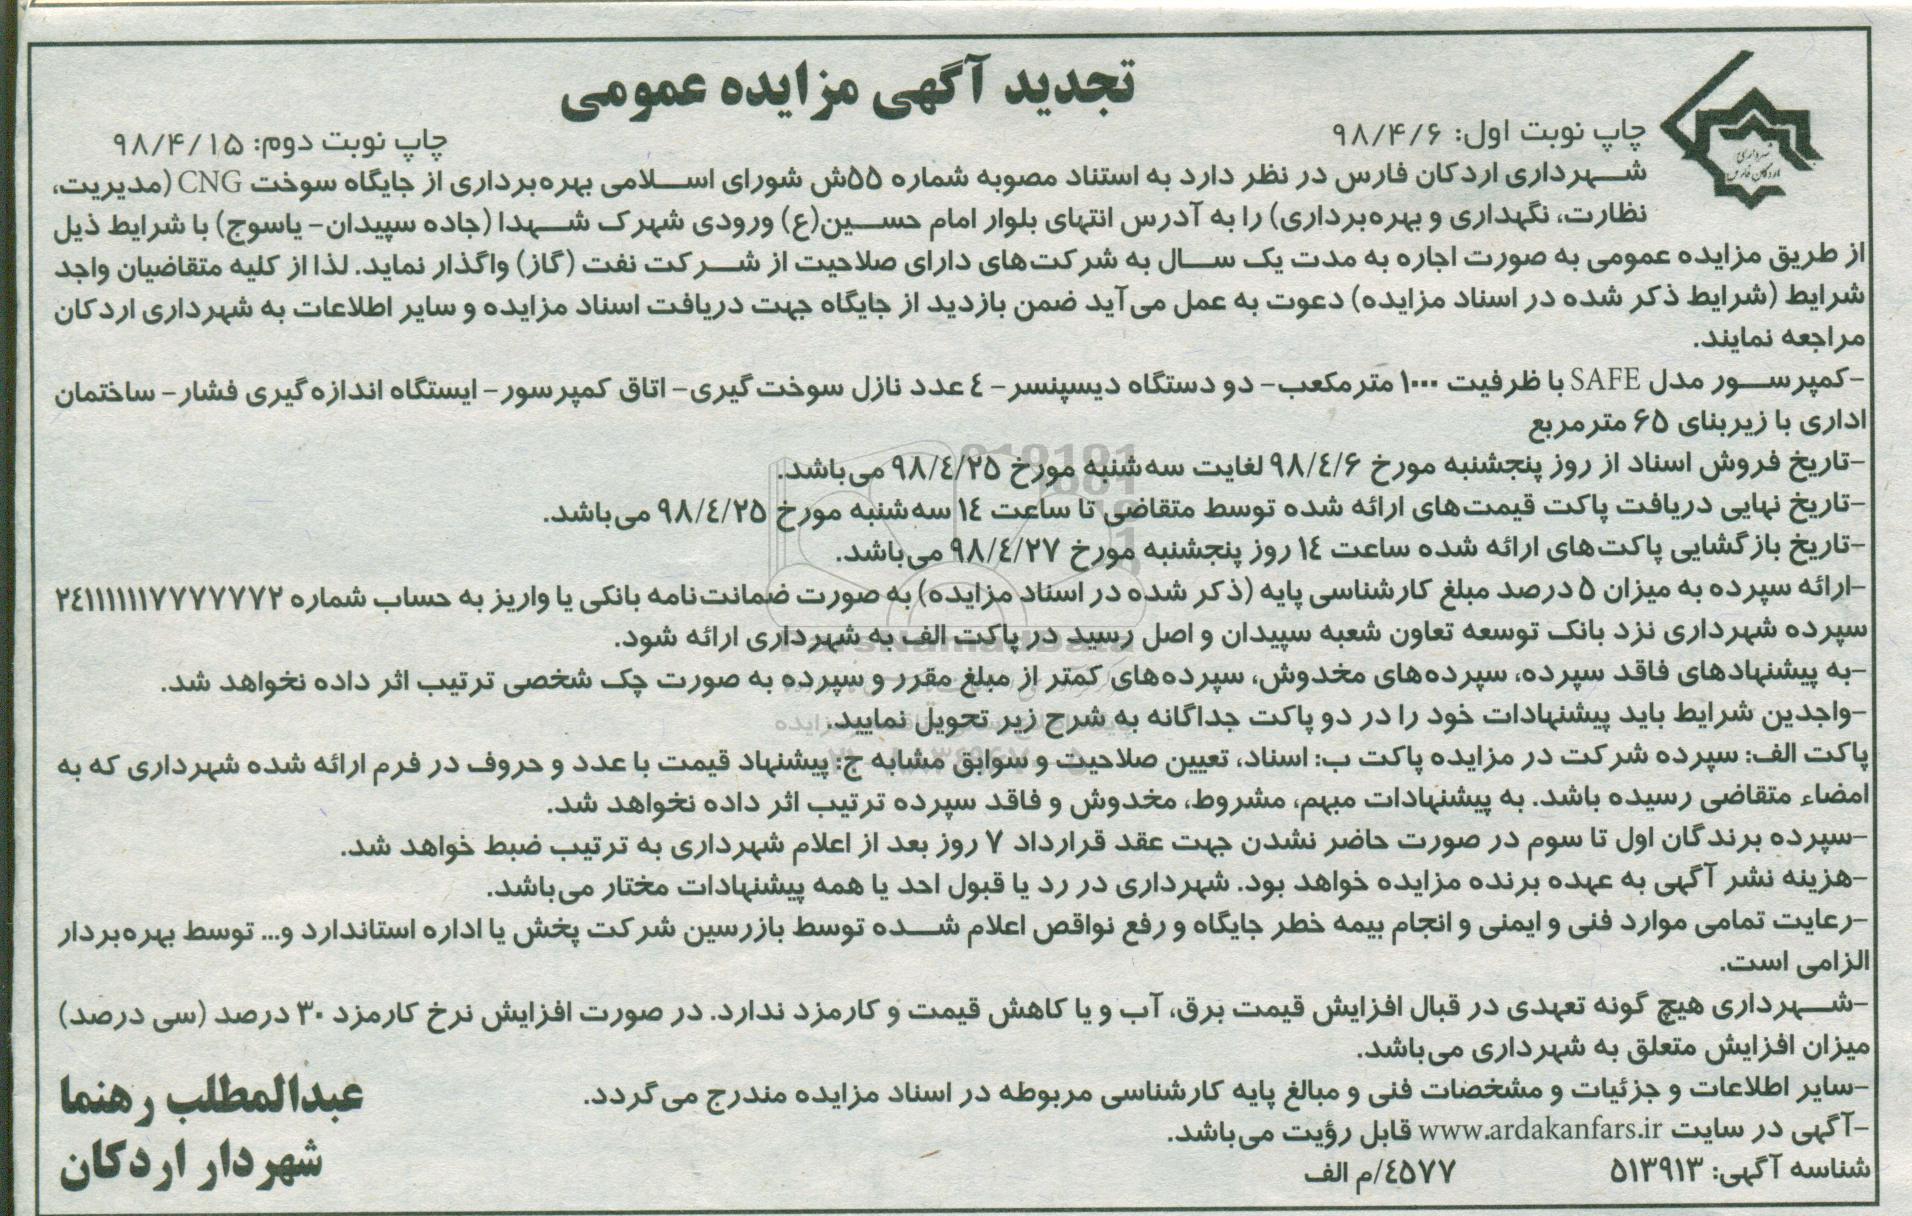 تجدید آگهی مزایده عمومی
شهرداری
اردکان فارس
چاپ نوبت اول: ۹۸/۴/۶
چاپ نوبت دوم: ۹۸/۴/۱۵
شهرداری اردکان فارس در نظر دارد به استناد مصوبه شماره ۵۵ش شورای اسلامی بهره‌برداری از جایگاه سوخت CNG (مدیریت،
نظارت، نگهداری و بهره‌برداری) را به آدرس انتهای بلوار امام حسین(ع) ورودی شهرک شهدا (جاده سپیدان- یاسوج) با شرایط ذیل
از طریق مزایده عمومی به صورت اجاره به مدت یک سال به شرکت‌های دارای صلاحیت از شرکت نفت (گاز) واگذار نماید. لذا از کلیه متقاضیان واجد
شرایط (شرایط ذکر شده در اسناد مزایده) دعوت به عمل می‌آید ضمن بازدید از جایگاه جهت دریافت اسناد مزایده و سایر اطلاعات به شهرداری اردکان
مراجعه نمایند.
-کمپرسور مدل SAFE با ظرفیت ۱۰۰۰ مترمکعب- دو دستگاه دیسپنسر- ۴ عدد نازل سوخت‌گیری- اتاق کمپرسور- ایستگاه اندازه‌گیری فشار- ساختمان
اداری با زیربنای ۶۵ مترمربع
-تاریخ فروش اسناد از روز پنجشنبه مورخ ۹۸/۴/۶ لغایت سه‌شنبه مورخ ۹۸/۴/۲۵ می‌باشد.
-تاریخ نهایی دریافت پاکت قیمت‌های ارائه شده توسط متقاضی تا ساعت ۱۴ سه‌شنبه مورخ ۹۸/۴/۲۵ می‌باشد.
-تاریخ بازگشایی پاکت‌های ارائه شده ساعت ۱۴ روز پنجشنبه مورخ ۹۸/۴/۲۷ می‌باشد.
-ارائه سپرده به میزان ۵ درصد مبلغ کارشناسی پایه (ذکر شده در اسناد مزایده) به صورت ضمانت‌نامه بانکی یا واریز به حساب شماره
سپرده شهرداری نزد بانک توسعه تعاون شعبه سپیدان و اصل رسید در پاکت الف به شهرداری ارائه شود.
-به پیشنهادهای فاقد سپرده، سپرده‌های مخدوش، سپرده‌های کمتر از مبلغ مقرر و سپرده به صورت چک شخصی ترتیب اثر داده نخواهد شد.
-واجدین شرایط باید پیشنهادات خود را در دو پاکت جداگانه به شرح زیر تحویل نمایید.
پاکت الف: سپرده شرکت در مزایده پاکت ب: اسناد، تعیین صلاحیت و سوابق مشابه ج: پیشنهاد قیمت با عدد و حروف در فرم ارائه شده شهرداری که به
امضاء متقاضی رسیده باشد. به پیشنهادات مبهم، مشروط، مخدوش و فاقد سپرده ترتیب اثر داده نخواهد شد.
-سپرده برندگان اول تا سوم در صورت حاضر نشدن جهت عقد قرارداد ۷ روز بعد از اعلام شهرداری به ترتیب ضبط خواهد شد.
-هزینه نشر آگهی به عهده برنده مزایده خواهد بود. شهرداری در رد یا قبول احد یا همه پیشنهادات مختار می‌باشد.
-رعایت تمامی موارد فنی و ایمنی و انجام بیمه خطر جایگاه و رفع نواقص اعلام شده توسط بازرسین شرکت پخش یا اداره استاندارد و... توسط بهره‌بردار
الزامی است.
-شهرداری هیچ گونه تعهدی در قبال افزایش قیمت برق، آب و یا کاهش قیمت و کارمزد ندارد. در صورت افزایش نرخ کارمزد ۳۰ درصد (سی درصد)
میزان افزایش متعلق به شهرداری می‌باشد.
-سایر اطلاعات و جزئیات و مشخصات فنی و مبالغ پایه کارشناسی مربوطه در اسناد مزایده مندرج می‌گردد.
-آگهی در سایت www.ardakanfars.ir قابل رؤیت می‌باشد.
شناسه آگهی: ۵۱۳۹۱۳
۴۵۷۷/م الف
عبدالمطلب رهنما
شهردار اردکان